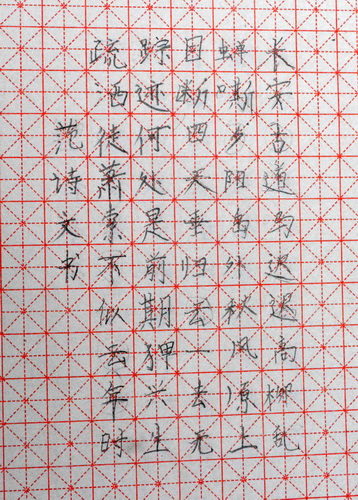 长安古道马迟迟高柳乱
蝉嘶夕阳岛外秋风原上
目断四天垂归云一去无
踪迹何处是前期狎兴生
疏酒徒萧索不似去年时
范诗文书